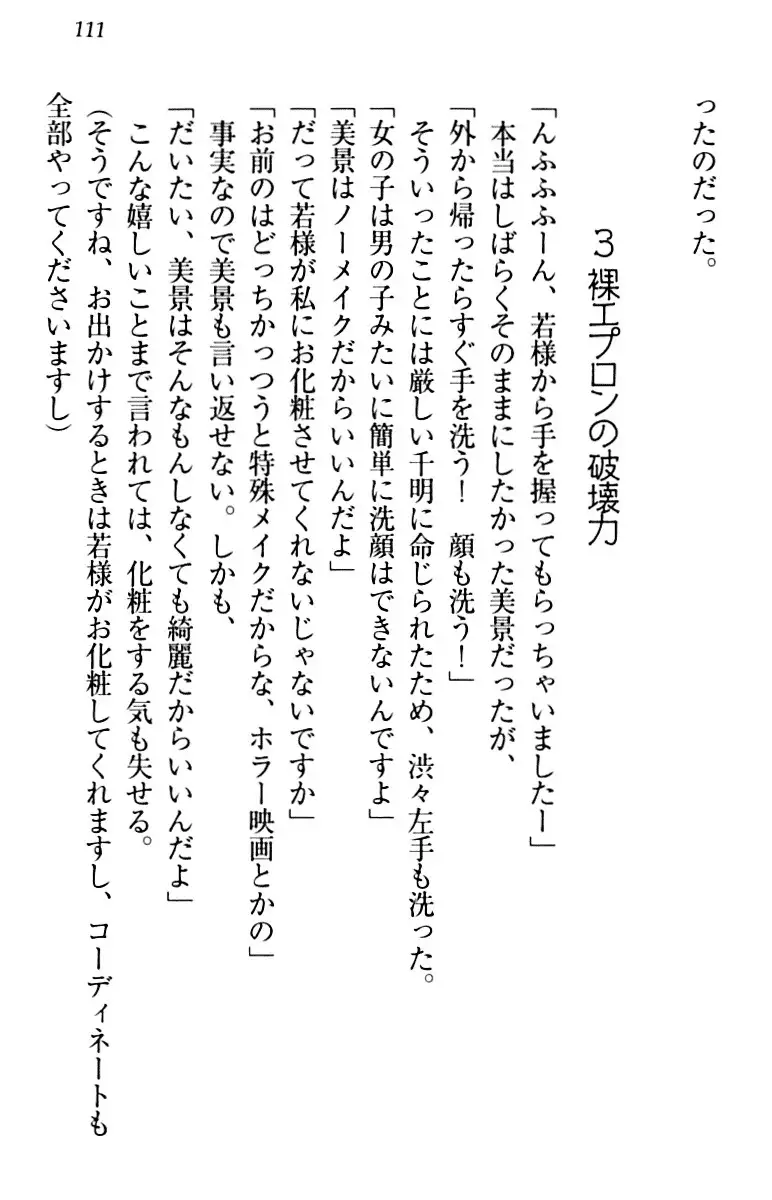 111
ったのだった。
3 裸エプロンの破壊力
「んふふふーん、若様から手を握ってもらっちゃいましたー」
本当はしばらくそのままにしたかった美景だったが、
「外から帰ったらすぐ手を洗う！　顔も洗う！」
そういったことには厳しい千明に命じられたため、渋々左手も洗った。
「女の子は男の子みたいに簡単に洗顔はできないんですよ」
「美景はノーメイクだからいいんだよ」
「だって若様が私にお化粧させてくれないじゃないですか」
「お前のはどっちかっつうと特殊メイクだからな、ホラー映画とかの」
事実なので美景も言い返せない。しかも、
「だいたい、美景はそんなもんしなくても綺麗だからいいんだよ」
こんな嬉しいことまで言われては、化粧をする気も失せる。
（そうですね、お出かけするときは若様がお化粧してくれますし、コーディネートも
全部やってくださいますし）